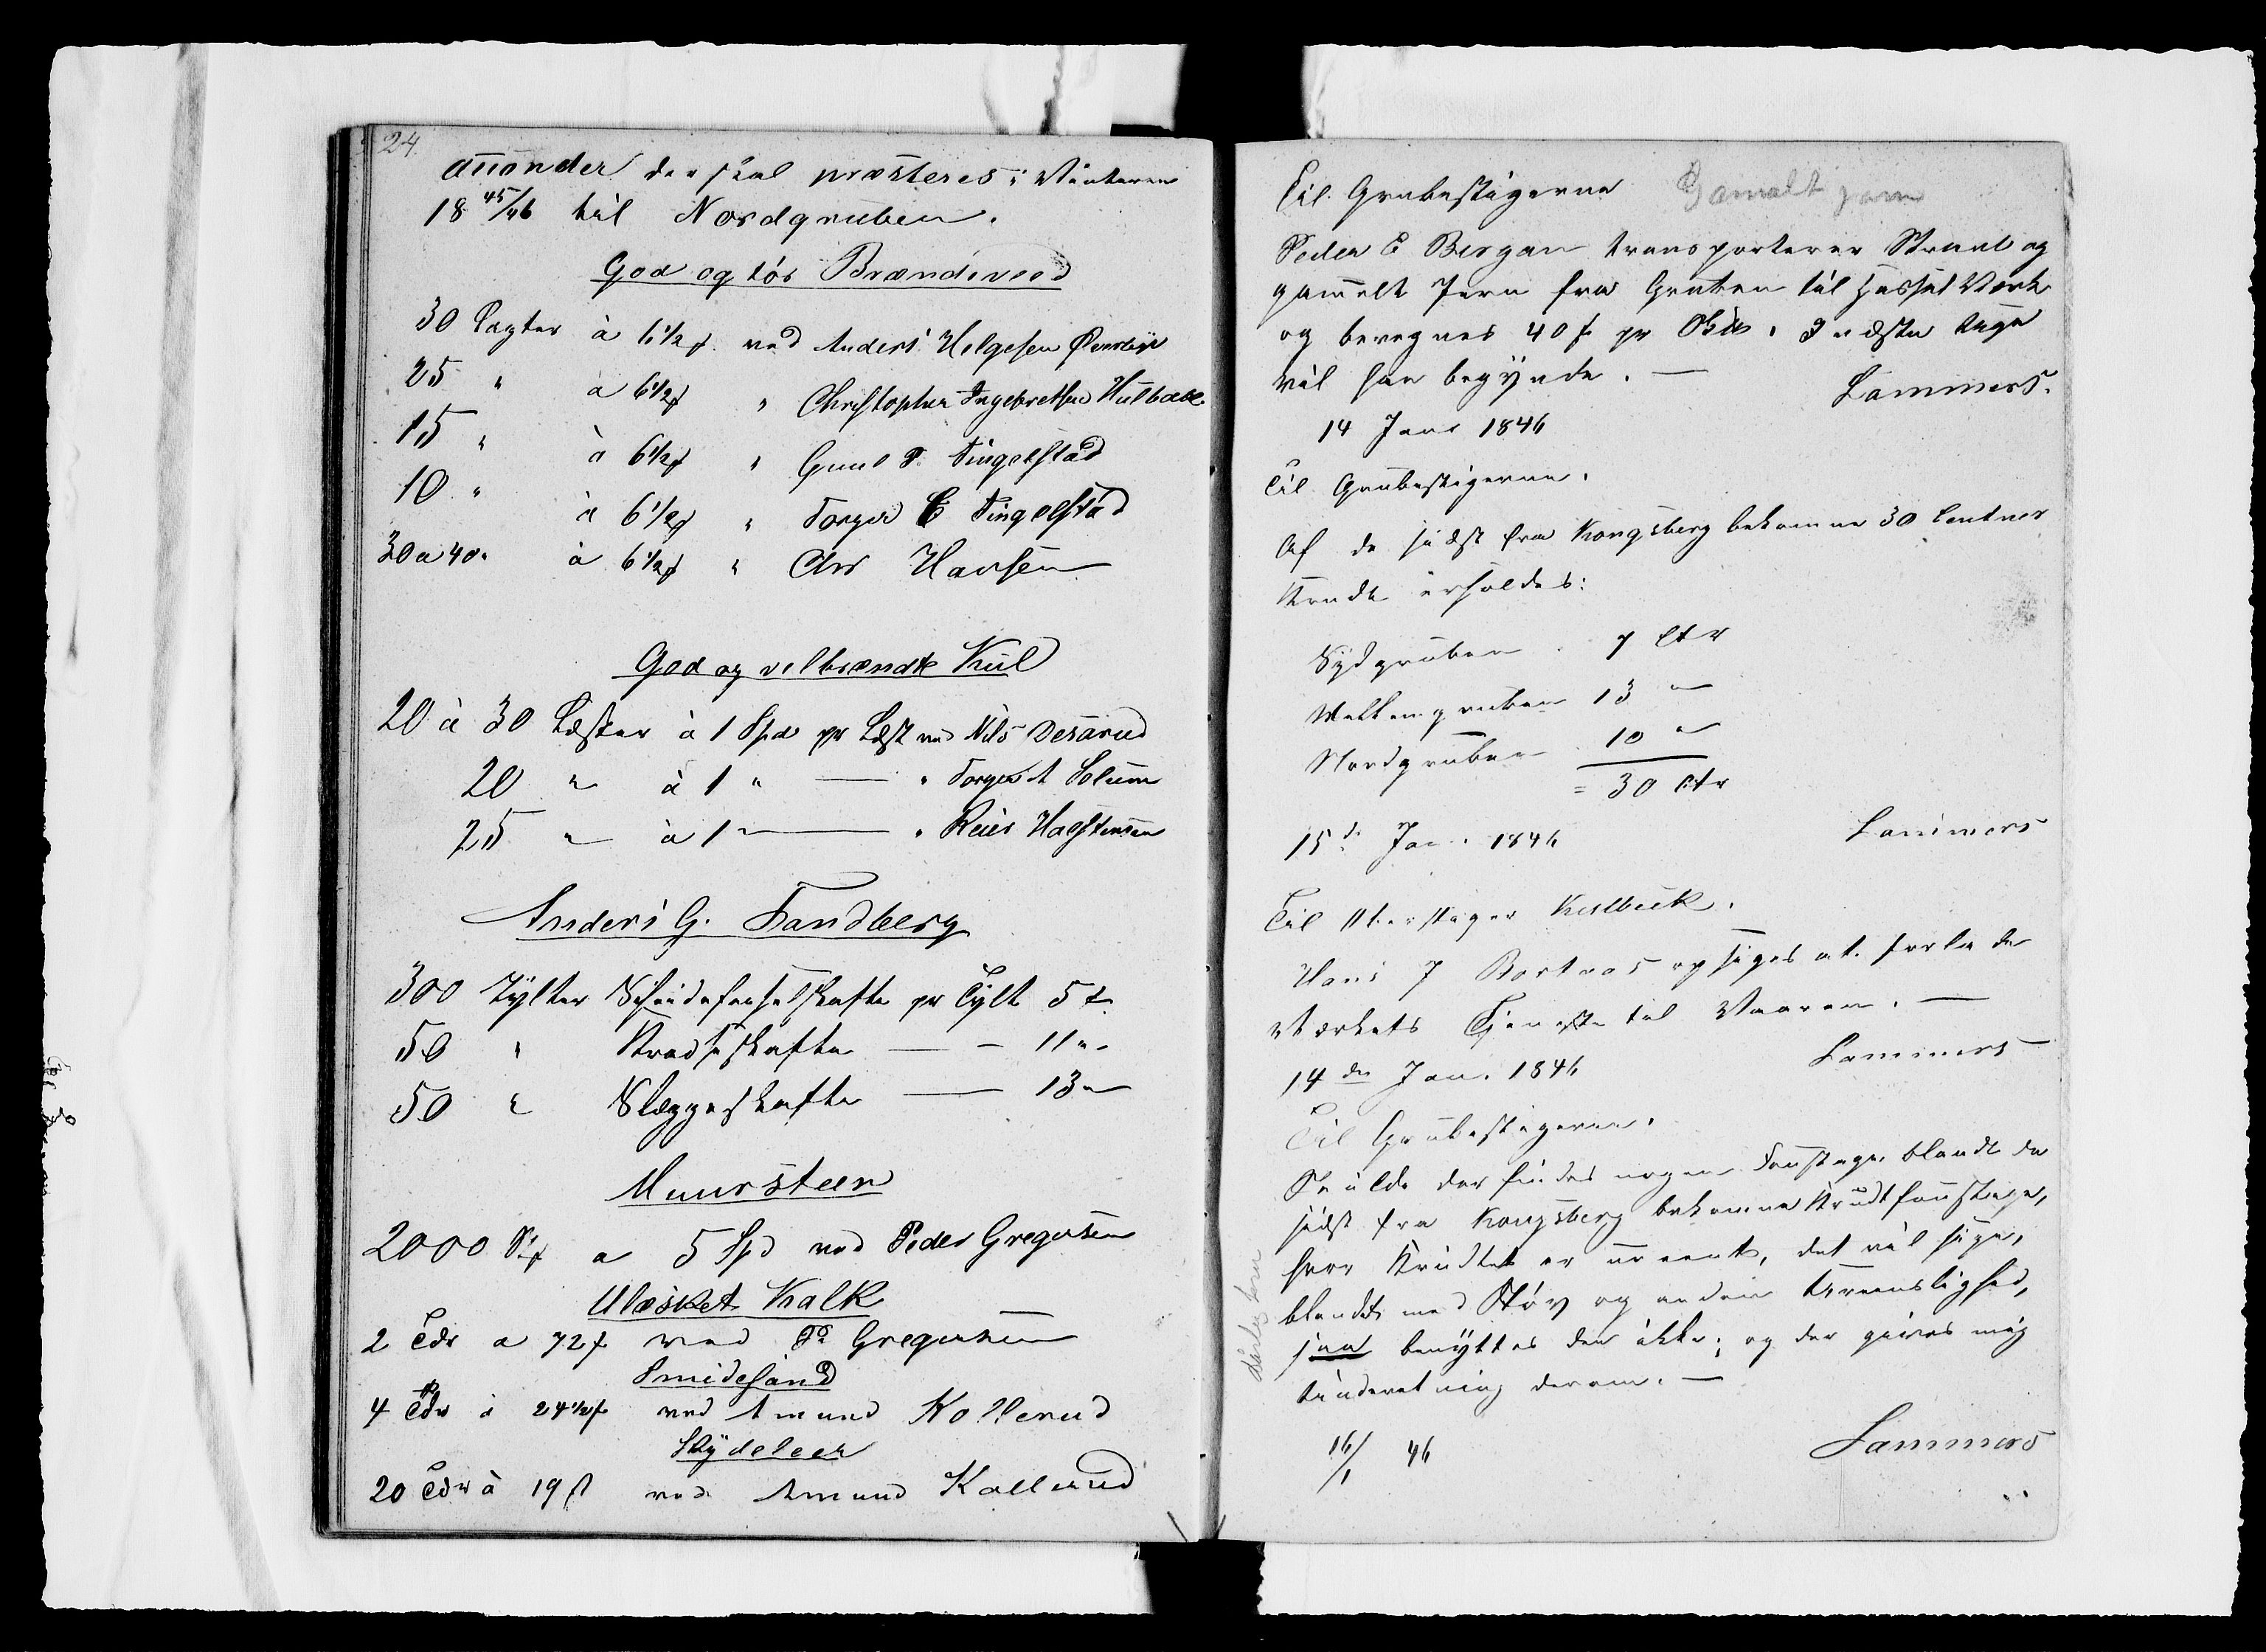 24.
der skal præsteres i Vinteren
18 45/46 til Nordgruben.
God og tör Brændeved
30 Lagter à 6 1/2 ƒ ved Anders Helgesen
25 " à 6 1/2 ƒ " Christopher Ingebretsen
15 " à 6 1/2 ƒ " Guul P. Tingelstad
10 " à 6 1/2 ƒ " Torger E Tingelstad
30 a 40 " à 6 1/2 ƒ " Chr Hansen
God og velbrændte Kul
20 à 30 Læster à 1 Spd pr Læst ved Nils Desarud
20 " à 1 " — " Torger A Solum
25 " à 1 " — " Reier Halstensen
Anders G. Sandberg
300 Tylter pr Tylt 5 ƒ
50 " Kradseskafte — - 11 " -
50 " Slæggeskafte — 13 "
Muursteen
2000 St a 5 Spd ved Peder Gregersen
Ulæsket Kalk
2 Tdr a 72 ƒ ved Pd Gregersen
Smidesand
4 Tdr à 24 1/2 ƒ ved Amund Kollerud
Skydeleer
20 Tdr à 19 ƒ ved Amund Kollerud
Til Grubestigerne Gamalt jarn
Peder E Bergan transporterer Staal og
gammelt Jern fra Gruben til Hassel Værk
og beregnes 40 ƒ pr . I næste Uge
vil han begynde. —
Lammers.
14 Jan 1846
Til Grubestigerne.
Af de sidst fra Kongsberg bekomne 30 Centner
Krudt erholdes:
Sydgruben . 7 Ctr
Mellemgruben 13 "
Nordgruben 10 "
= 30 Ctr
15de Jan. 1846
Lammers
Til Oberstiger Kulbeck.
Hans J Bortnes opsiges at forlade
Værkets Tjeneste til Vaaren. —
14 de Jan. 1846
Lammers
Til Grubestigerne.
Skulde der findes nogen Foustage blandt de
sidst fra Kongsberg bekomne Krudtfoustager,
hvor Krudtet er ureent, det vil sige,
blandet med Støv og anden Ureenslighed,
saa benyttes den ikke; og der gives mig
Underretning derom. —
16/1 46
Lammers